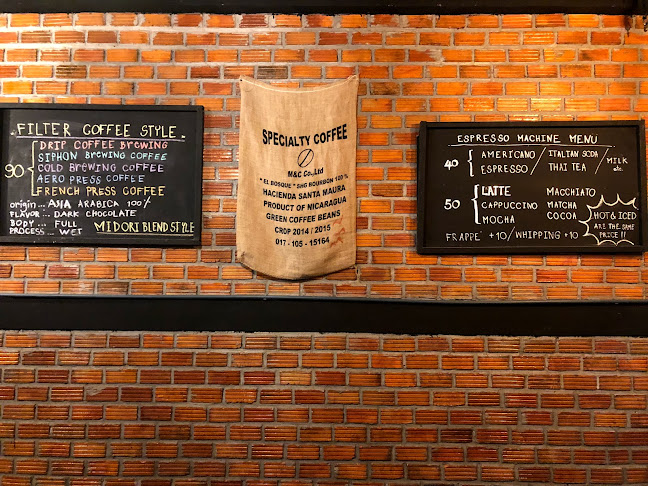 FILTER COFFEE STYLE
90
DRIP COFFEE BREWING
SIPHON BREWING COFFEE
COLD BREWING COFFEE
AERO PRESS COFFEE
FRENCH PRESS COFFEE
origin... ASIA ARABICA 100%
FLAVOR... DARK CHOCOLATE
BODY... FULL
PROCESS... WET
MIDORI BLEND STYLE
SPECIALTY COFFEE
M&C Co.,Ltd
" EL BOSQUE " SHG BOURBON 100 %
HACIENDA SANTA MAURA
PRODUCT OF NICARAGUA
GREEN COFFEE BEANS
CROP 2014 / 2015
017 - 105 - 15164
ESPRESSO MACHINE MENU
40
AMERICANO / ITALIAN SODA
ESPRESSO / THAI TEA / MILK etc.
50
LATTE MACCHIATO
CAPPUCCINO MATCHA
MOCHA COCOA
HOT & ICED
ARE THE SAME
PRICE !!
FRAPPE' +10 / WHIPPING +10